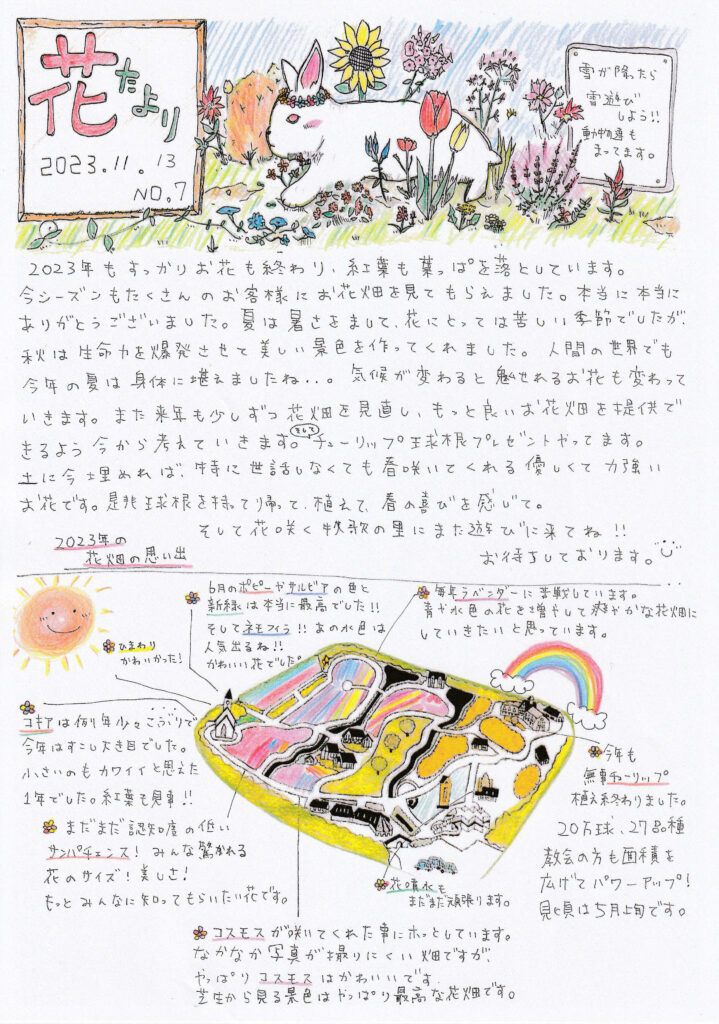 花だより
2023.11.13
NO.7
雪が降ったら
雪遊び
しよう!!
動物達も
まってます。
2023年もすっかりお花も終わり、紅葉も葉っぱを落としています。
今シーズンもたくさんのお客様にお花畑を見てもらえました。本当に本当に
ありがとうございました。夏は暑さをまして、花にとっては苦しい季節でしたが、
秋は生命力を爆発させて美しい景色を作ってくれました。人間の世界でも
今年の夏は身体に堪えましたね...。気候が変わると魅せれるお花も変わって
いきます。また来年も少しずつ花畑を見直し、もっと良いお花畑を提供で
きるよう今から考えていきます。そしてチューリップ球根プレゼントやってます。
土に今埋めれば、特に世話しなくても春咲いてくれる優しくて力強い
お花です。是非球根を持って帰って、植えて、春の喜びを感じて。
そして花咲く牧歌の里にまた遊びに来てね!!
お待ちしております。
2023年の
花畑の思い出
6月のポピーやサルビアの色と
新緑は本当に最高でした!!
そしてネモフィラ!!あの水色は
人気出るね!!
かわいい花でした。
毎年ラベンダーに苦戦しています。
青や水色の花を増やして爽やかな花畑に
していきたいと思っています。
ひまわり
かわいかった!
コキアは例年少々こぶりで
今年はすこし大き目でした。
小さいのもカワイイと思えた
1年でした。紅葉も見事!!
まだまだ認知度の低い
サンパチェンス!みんな驚かれる
花のサイズ!美しさ!
もっとみんなに知ってもらいたい花です。
今年も
無事チューリップ
植え終わりました。
20万球、27品種
教会の方も面積を
広げてパワーアップ!
見頃は5月上旬です。
花噴水も
まだまだ頑張ります。
コスモスが咲いてくれた事にホッとしています。
なかなか写真が撮りにくい畑ですが、
やっぱりコスモスはかわいいです。
芝生から見る景色はやっぱり最高な花畑です。